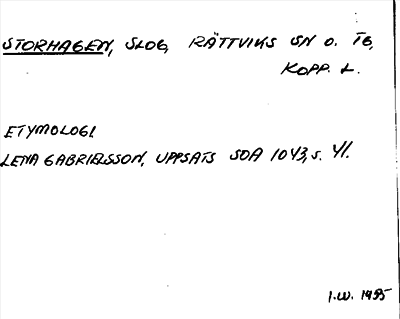 STORHAGEN, SLOG, RÄTTVIKS SN O. TG,
KOPP. L.
ETYMOLOGI
LENA GABRIELSSON, UPPSATS SOA 1043, S. 41.
I.W. 1985